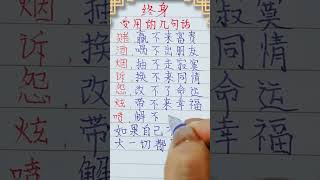 终身
受用的几句话
赌，赢不来富贵
酒，喝不出朋友
烟，抽不走寂寞
诉，换不来同情
怨，改不了命运
炫，带不来幸福
喷，解不
如果自己不
大一切都